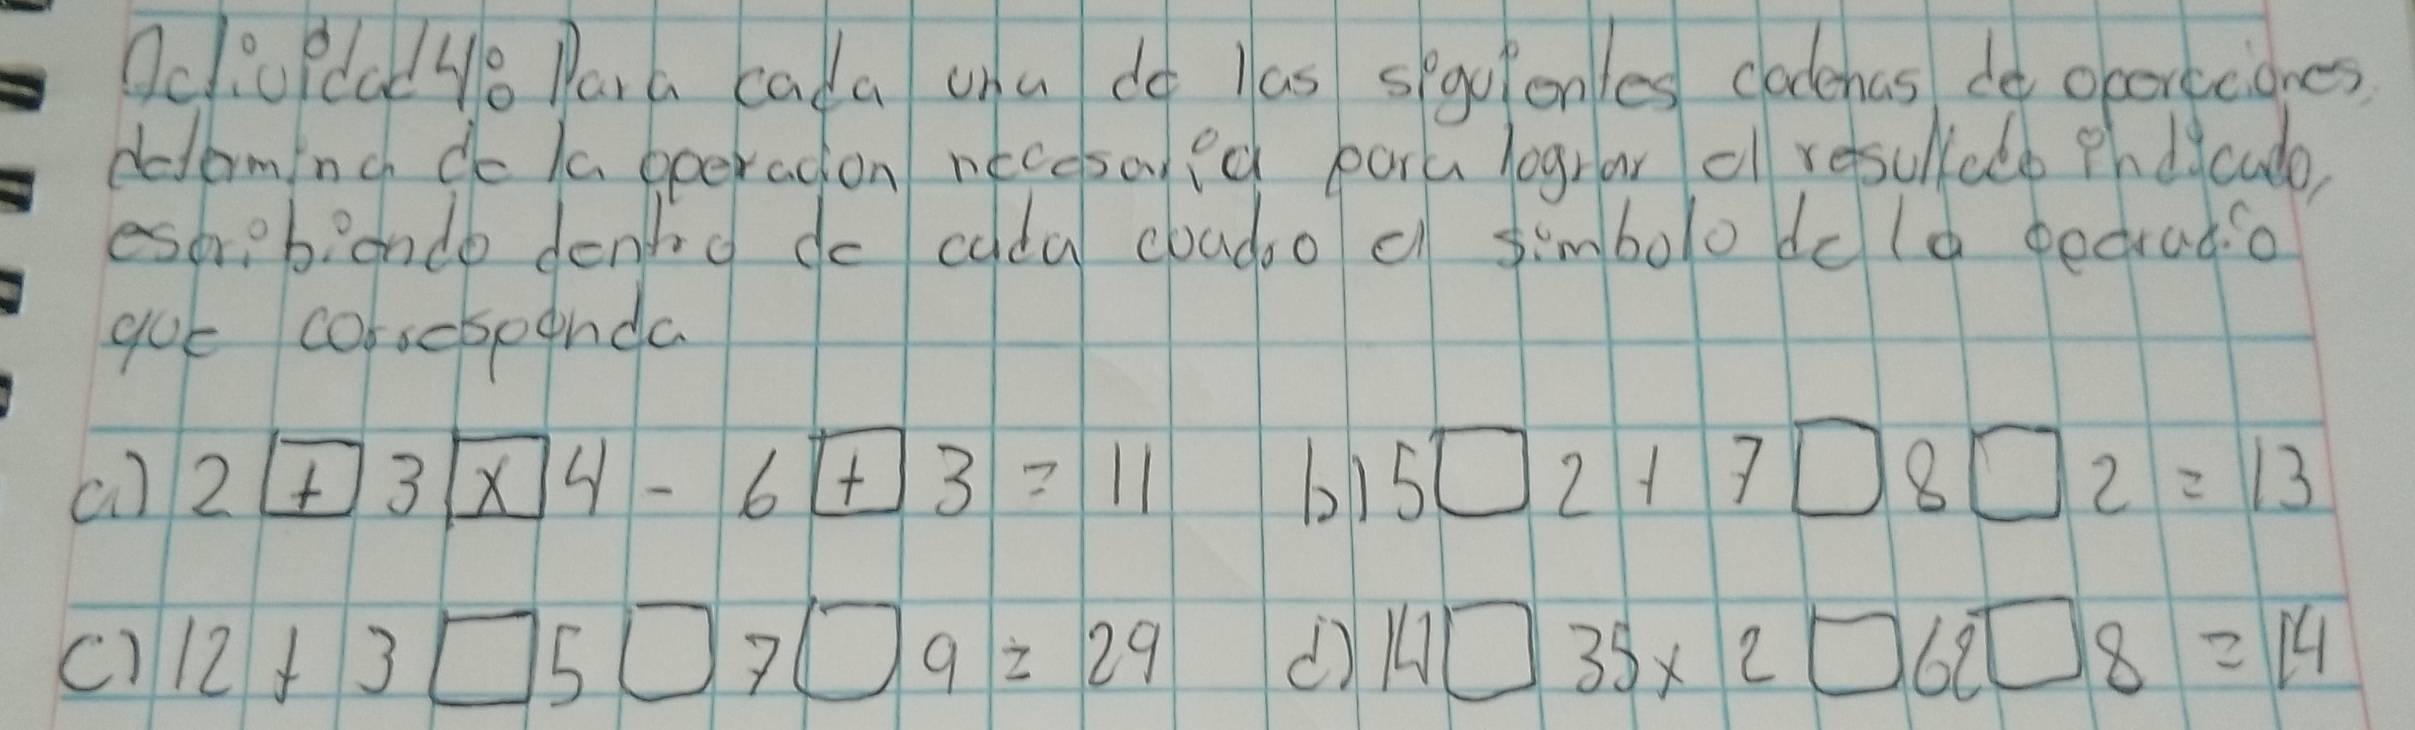 Actividad 4: Para cada una de las siguientes cadenas de operaciones,
determina de la operacion necesaria para lograr el resultado indicado,
escribiendo dentro de cada cuadro el simbolo de la
que corresponda
a) 2 [+] 3 [x] 4 - 6 [+] 3 = 11 b) 5 □ 2 + 7 □ 8 □ 2 = 13
c) 12 + 3 □ 5 □ 7 □ 9 = 29 d) 14 □ 35 x 2 □ 62 □ 8 = 14